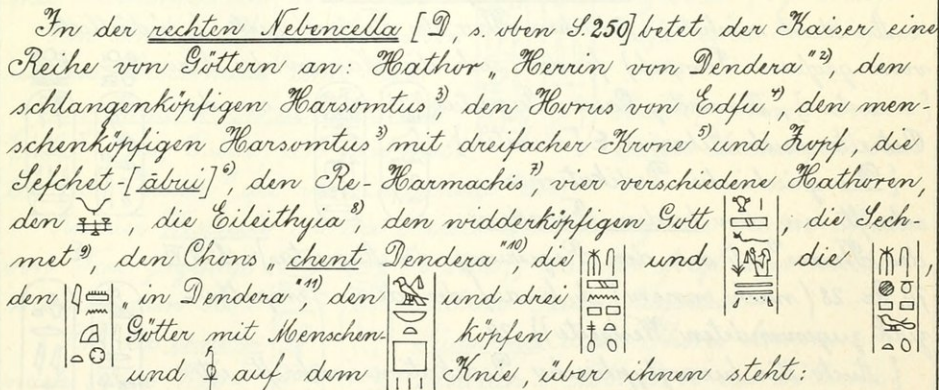 In der rechten Nebencella [D, s. oben S. 250] betet der Kaiser eine
Reihe von Göttern an: Hathor „Herrin von Dendera"²⁾, den
schlangenköpfigen Harsomtus³⁾, den Horus von Edfu⁴⁾, den men-
schenköpfigen Harsomtus³⁾ mit dreifacher Krone⁵⁾ und Zopf, die
Sefchet-[ābui]⁶⁾, den Re-Harmachis⁷⁾, vier verschiedene Hathoren,
den , die Eileithyia⁸⁾, den widderköpfigen Gott , die Sech-
met⁹⁾, den Chons „chent Dendera"¹⁰⁾, die und die ,
den „in Dendera"¹¹⁾, den und drei
Götter mit Menschen- köpfen
und auf dem Knie, über ihnen steht: